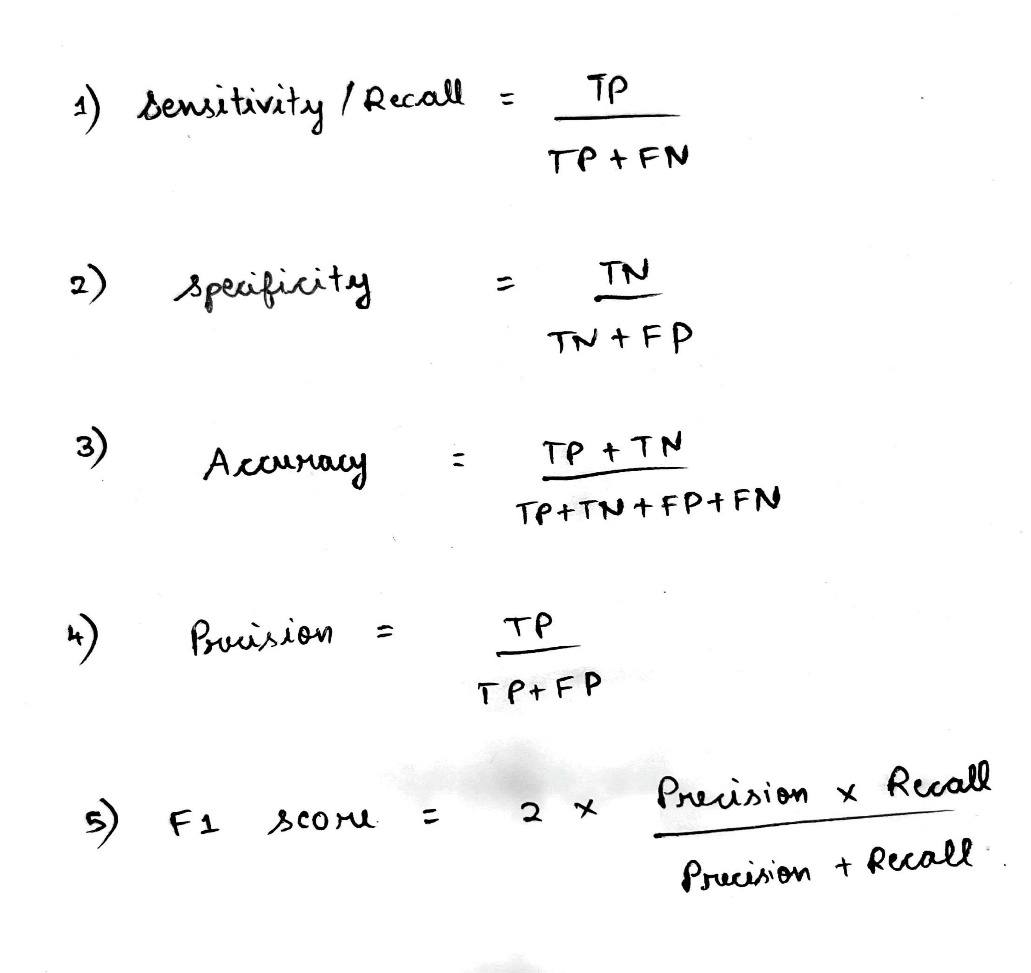 1) Sensitivity / Recall = TP
TP + FN
2) Specificity = TN
TN + FP
3) Accuracy = TP + TN
TP+TN+FP+FN
4) Precision = TP
TP+FP
5) F1 score = 2 × Precision × Recall
Precision + Recall